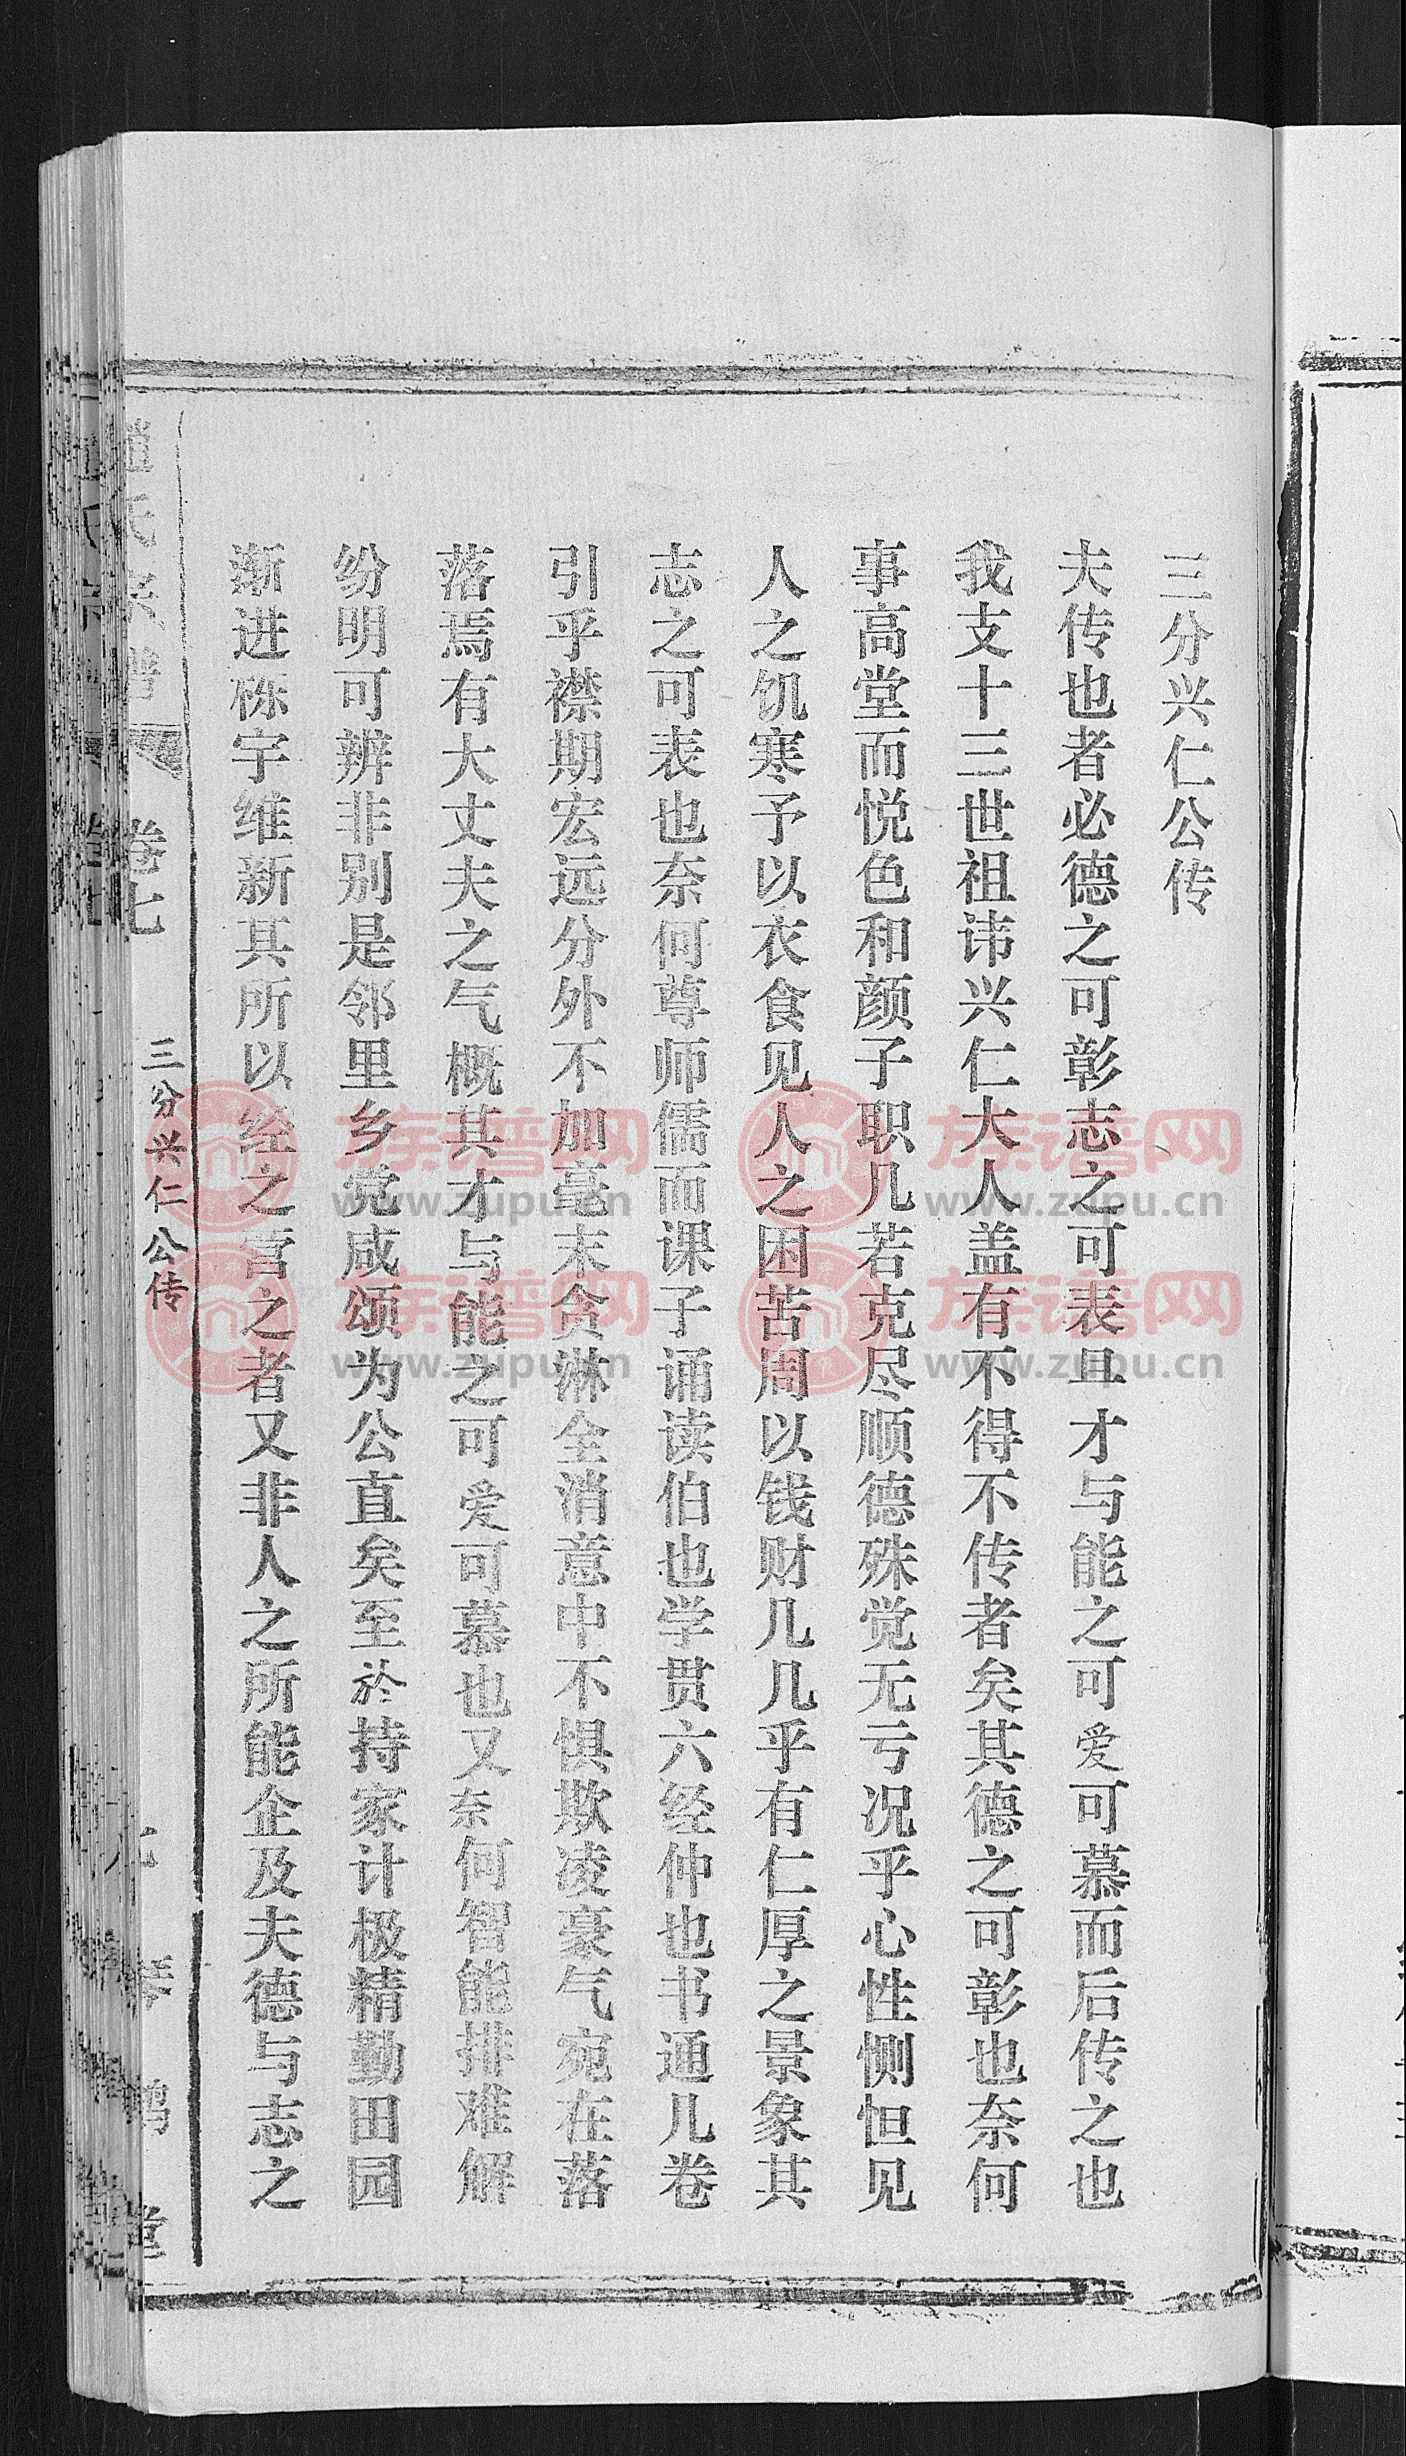 三分兴仁公传
夫传也者必德之可彰志之可表且才与能之可爱可慕而后传之也
我支十三世祖讳兴仁大人盖有不得不传者矣其德之可彰也奈何
事高堂而悦色和颜子职几若克尽顺德殊觉无亏况乎心性恻怛见
人之饥寒予以衣食见人之困苦周以钱财几几乎有仁厚之景象其
志之可表也奈何尊师儒而课子诵读伯也学贯六经仲也书通几卷
引乎襟期宏远分外不加毫末贪淋全消意中不惧欺凌豪气宛在落
落焉有大丈夫之气概其才与能之可爱可慕也又奈何智能排难解
纷明可辨非别是邻里乡党咸颂为公直矣至於持家计极精勤田园
渐进栋宇维新其所以经之营之者又非人之所能企及夫德与志之
趙氏宗譜
卷七
三分兴仁公传
琴鹤堂
族谱网
www.zupu.cn
族谱网
www.zupu.cn
族谱网
www.zupu.cn
族谱网
www.zupu.cn